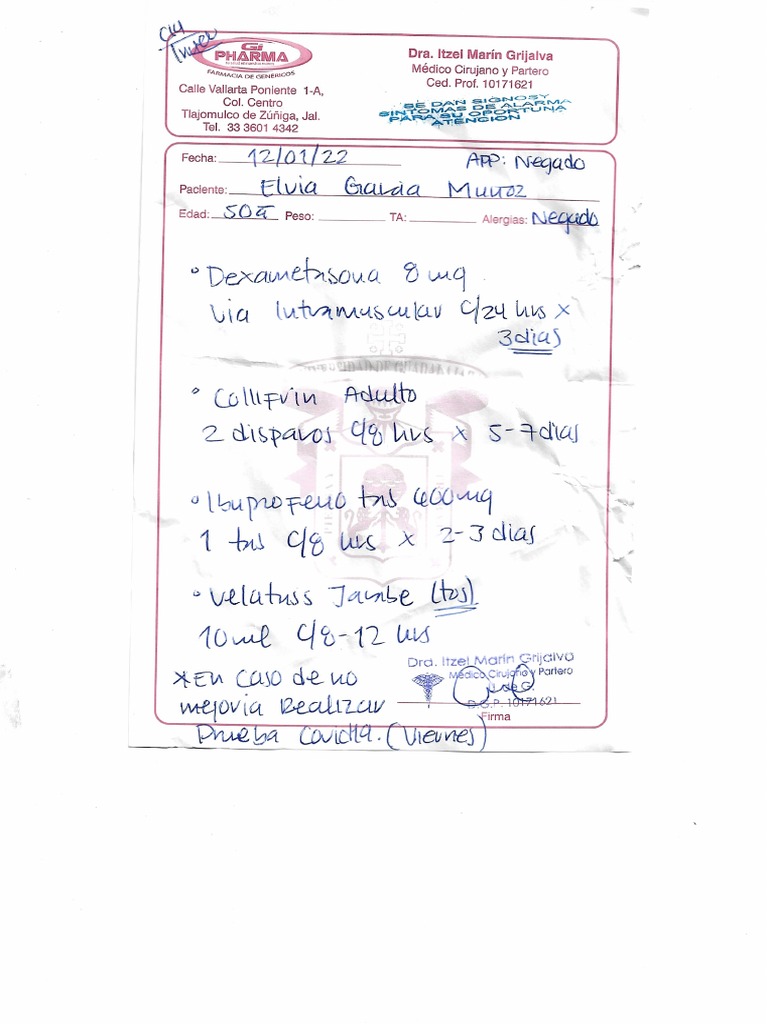 Gi
PHARMA
FARMACIA DE GENÉRICOS
Calle Vallarta Poniente 1-A,
Col. Centro
Tlajomulco de Zúñiga, Jal.
Tel. 33 3601 4342
Dra. Itzel Marín Grijalva
Médico Cirujano y Partero
Ced. Prof. 10171621
SE DAN SIGNOS Y
SINTOMAS DE ALARMA
PARA SU OPORTUNA
ATENCION
Fecha: 12/01/22 APP: Negado
Paciente: Elvia Garcia Muñoz
Edad: 50a Peso: TA: Alergias: Negado
° Dexametasona 8 mg
Via Intramuscular c/24 hrs x
3 dias
° Collifrin Adulto
2 disparos c/8 hrs x 5-7 dias
° Ibuprofeno tas 400mg
1 tas c/8 hrs x 2-3 dias
• Velatuss Jarabe (tos)
10 ml c/8-12 hrs
Dra. Itzel Marín Grijalva
Médico Cirujano y Partero
D.G.P. 10171621
Firma
*En caso de no
mejoria Realizar
Prueba Covid19. (Viernes)